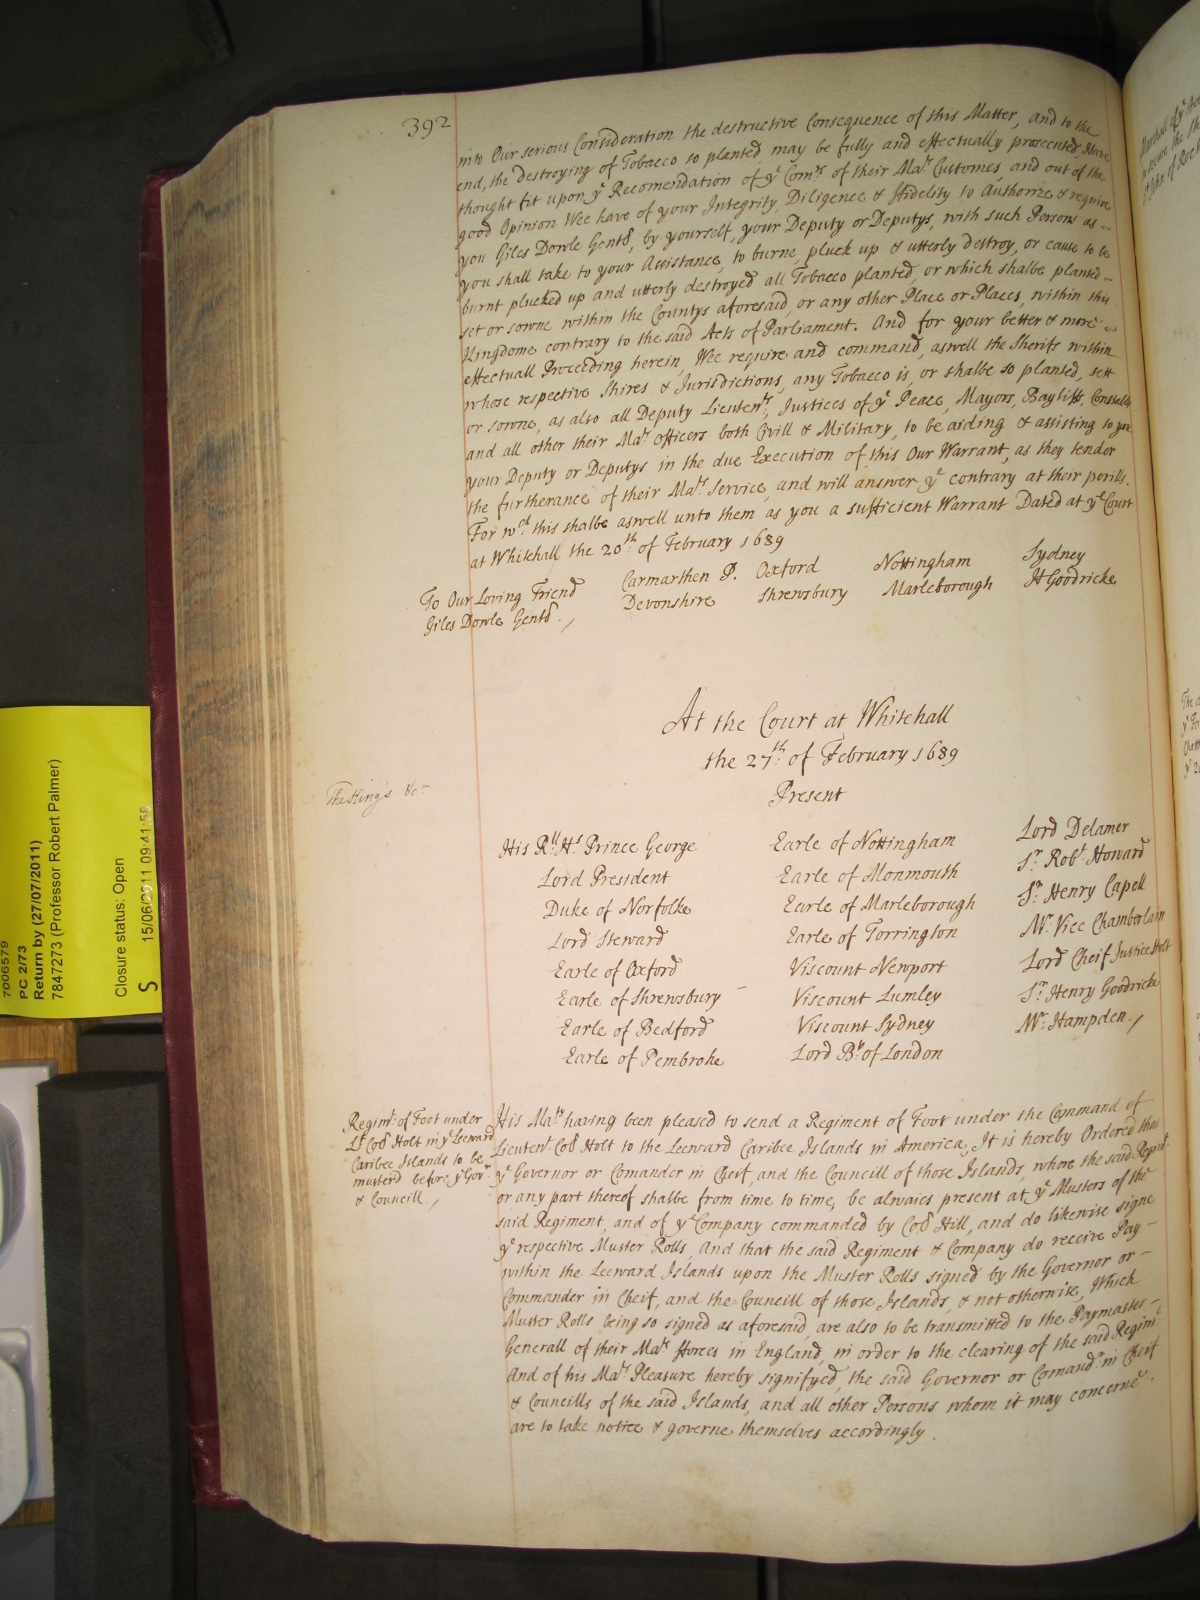 392
into Our serious Consideration the destructive Consequence of this Matter, and to the
end, the destroying of Tobacco so planted may be fully and effectually prosecuted, Have
thought fit upon yᵉ Recomendation of yᵉ Comʳˢ of their Maᵗˢ Customes, and out of the
good Opinion Wee have of your Integrity, Diligence & Fidelity to Authorize & require
you Giles Dowle Gentˡ, by yourself, your Deputy or Deputys, with such Persons as
you shall take to your Assistance, to burne, pluck up & utterly destroy, or cause to be
burnt plucked up and utterly destroyed all Tobacco planted, or which shalbe planted
set or sowne within the Countys aforesaid, or any other Place or Places, within this
Kingdome contrary to the said Acts of Parliament. And for your better & more
effectuall Proceeding herein, Wee require and command, aswell the Sherifs within
whose respective Shires & Jurisdictions, any Tobacco is, or shalbe so planted, sett
or sowne, as also all Deputy Lieutenᵗˢ, Justices of yᵉ Peace, Mayors, Bayliffs, Constables
and all other their Maᵗˢ Officers both Civill & Military, to be aiding & assisting to you
your Deputy or Deputys in the due Execution of this Our Warrant, as they tender
the furtherance of their Maᵗˢ Service, and will answer yᵉ contrary at their perills.
For wᶜʰ this shalbe aswell unto them as you a sufficient Warrant Dated at yᵉ Court
at Whitehall the 20ᵗʰ of February 1689
To Our Loving Friend
Giles Dowle Gentˡ.
Carmarthen P. Oxford Nottingham Sydney
Devonshire Shrewsbury Marleborough H Goodricke
At the Court at Whitehall
the 27ᵗʰ of February 1689
Present
The King's &c
His Rˡˡ Hˢ Prince George Earle of Nottingham Lord Delamer
Lord President Earle of Monmouth Sʳ Robᵗ Howard
Duke of Norfolke Earle of Marleborough Sʳ Henry Capell
Lord Steward Earle of Torrington Mʳ Vice Chamberlain
Earle of Oxford Viscount Newport Lord Cheif Justice Holt
Earle of Shrewsbury Viscount Lumley Sʳ Henry Goodricke
Earle of Bedford Viscount Sydney Mʳ Hampden
Earle of Pembroke Lord Bᵖ of London
Regimᵗ of Foot under
Lᵗ Coˡˡ Holt in yᵉ Leeward
Caribee Islands to be
musterd before yᵉ Govʳ
& Councill
His Maᵗʸ having been pleased to send a Regiment of Foot under the Command of
Lieutenᵗ Coˡˡ Holt to the Leeward Caribee Islands in America, It is hereby Ordered that
yᵉ Governor or Comander in Cheif, and the Councill of those Islands, where the said Regimᵗ
or any part thereof shalbe from time to time, be alwaies present at yᵉ Musters of the
said Regiment, and of yᵉ Company commanded by Coˡˡ Hill, and do likewise signe
yᵉ respective Muster Rolls, And that the said Regiment & Company do receive Pay
within the Leeward Islands upon the Muster Rolls signed by the Governor or
Commander in Cheif, and the Councill of those Islands, & not otherwise, Which
Muster Rolls being so signed as aforesaid, are also to be transmitted to the Paymaster
Generall of their Maᵗˢ Forces in England, in order to the clearing of the said Regimᵗ
And of his Maᵗˢ Pleasure hereby signifyed, the said Governor or Comandʳ in Cheif
& Councills of the said Islands, and all other Persons whom it may concerne
are to take notice & governe themselves accordingly.
7006579
PC 2/73
Return by (27/07/2011)
7847273 (Professor Robert Palmer)
Closure status: Open
S 15/06/2011 09:41:58